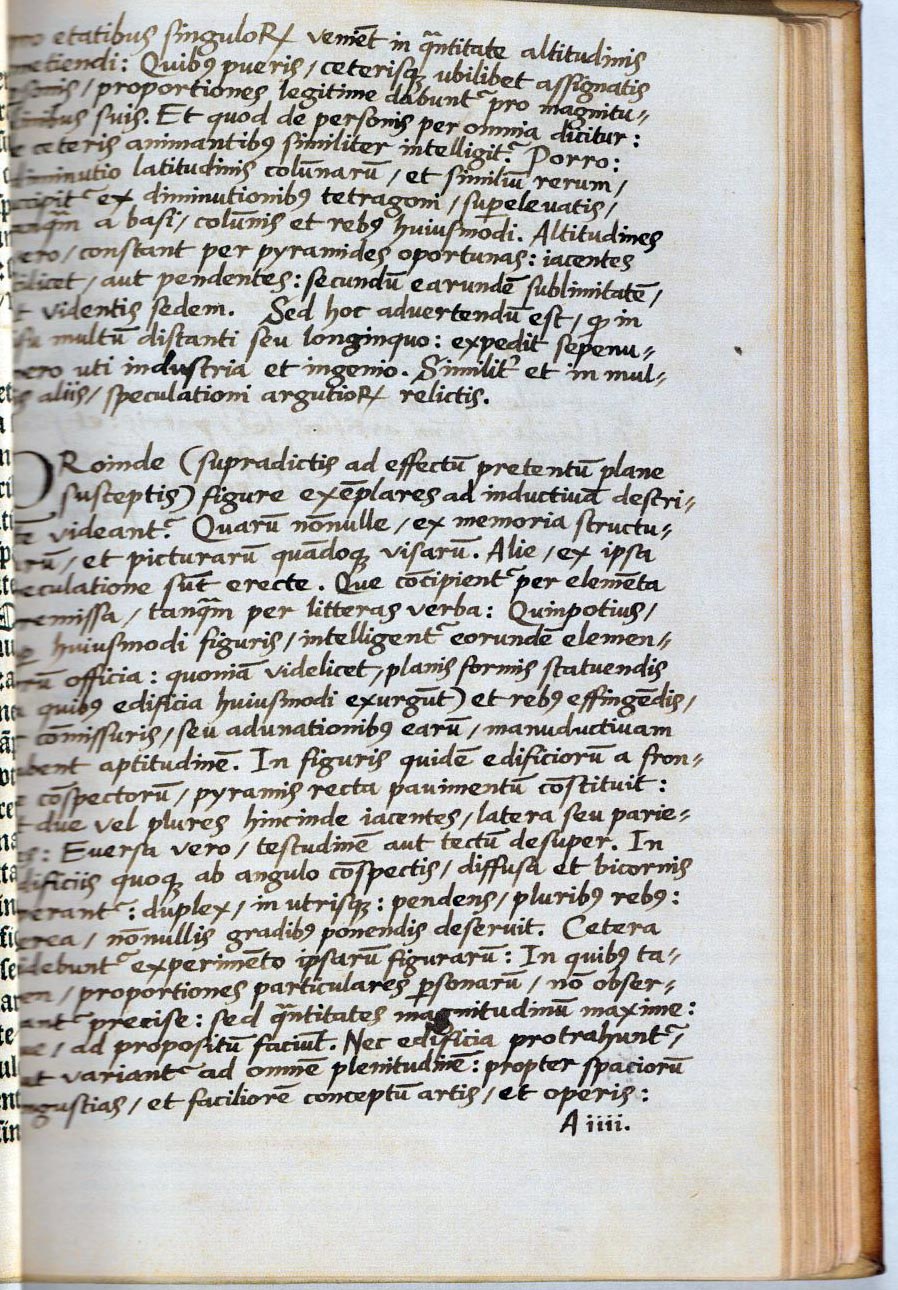 etatibus singuloꝝ venie᷑t in q̄ntitate altitudinis
metiendi: Quibꝰ pueris / ceterisqꝫ ubilibet assignatis
proportiones legitime dabunt᷑ pro magnitu⸗
suis. Et quod de personis per omnia dicitur:
ceteris animantibꝰ similiter intelligit᷑. Porro:
diminutio latitudinis colūnarū / et similiū rerum /
ex diminutionibꝰ tetragoni / suꝑelevatis /
a basi / colūnis et rebꝰ huiusmodi. Altitudines
constant per pyramides oportunas: iacentes
aut pendentes: secundū earundē sublimitatē /
videntis sedem. Sed hoc advertendū est / ꝙ in
multū distanti seu longinquo: expedit sepenu⸗
uti industria et ingenio. Similit᷑ et in mul⸗
aliis / speculationi argutioꝝ relictis.
PRoinde (supradictis ad effectū pretentū plane
susceptis) figure exēplares ad inductivā descri⸗
videant᷑. Quarū nōnulle / ex memoria structu⸗
rū / et picturarū quādoqꝫ visarū. Alie / ex ipsa
speculatione sūt erecte. Que cōcipient᷑ per elemēta
premissa / tanq̄m per litteras verba: Quinpotius /
huiusmodi figuris / intelligent᷑ eorundē elemen⸗
officia: quoniā videlicet / planis formis statuendis
quibꝰ edificia huiusmodi exurgūt) et rebꝰ effingēdis /
cōmissuris / seu adunationibꝰ earū / manuductivam
aptitudinē. In figuris quidē edificiorū a fron⸗
cōspectorū / pyramis recta pavimentū cōstituit:
due vel plures hincinde iacentes / latera seu parie⸗
Eversa vero / testudinē aut tectū desuper. In
edificiis quoqꝫ ab angulo cōspectis / diffusa et bicornis
duplex / in utrisqꝫ: pendens / pluribꝰ rebꝰ:
nōnullis gradibꝰ ponendis deservit. Cetera
experimēto ipsarū figurarū: In quibꝰ ta⸗
proportiones particulares ꝑsonarū / nō obser⸗
precise: sed q̄ntitates magnitudinū maxime:
ad propositū faciūt. Nec edificia protrahunt᷑ /
variant᷑ ad omnē plenitudinē: propter spaciorū
angustias / et faciliorē conceptū artis / et operis:
A iiii.